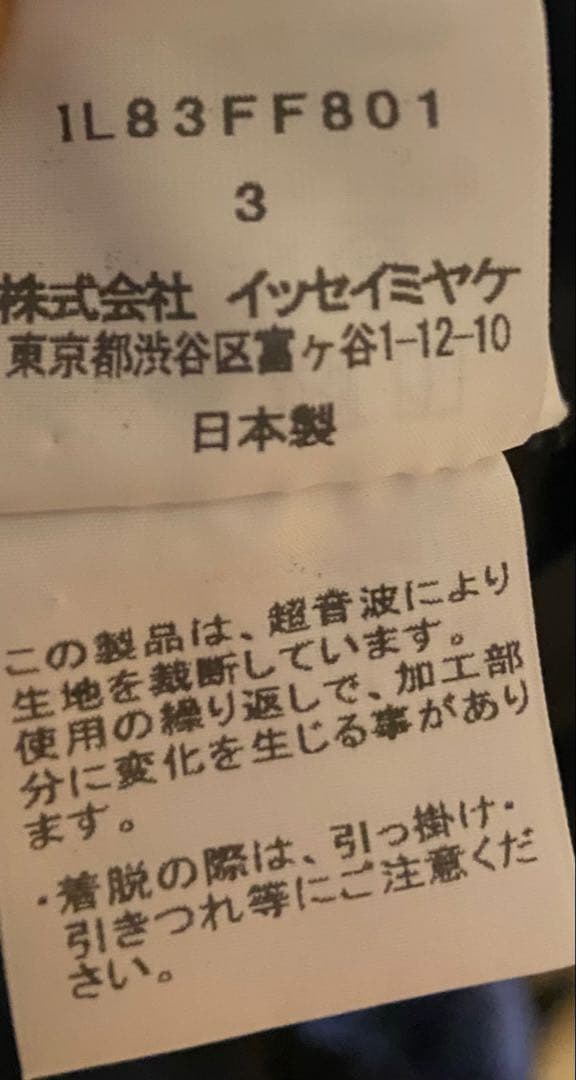 IL83FF801
3
株式会社 イッセイミヤケ
東京都渋谷区富ヶ谷1-12-10
日本製
この製品は、超音波により
生地を裁断しています。
使用の繰り返しで、加工部
分に変化を生じる事があり
ます。
・着脱の際は、引っ掛け・
引きつれ等にご注意くだ
さい。